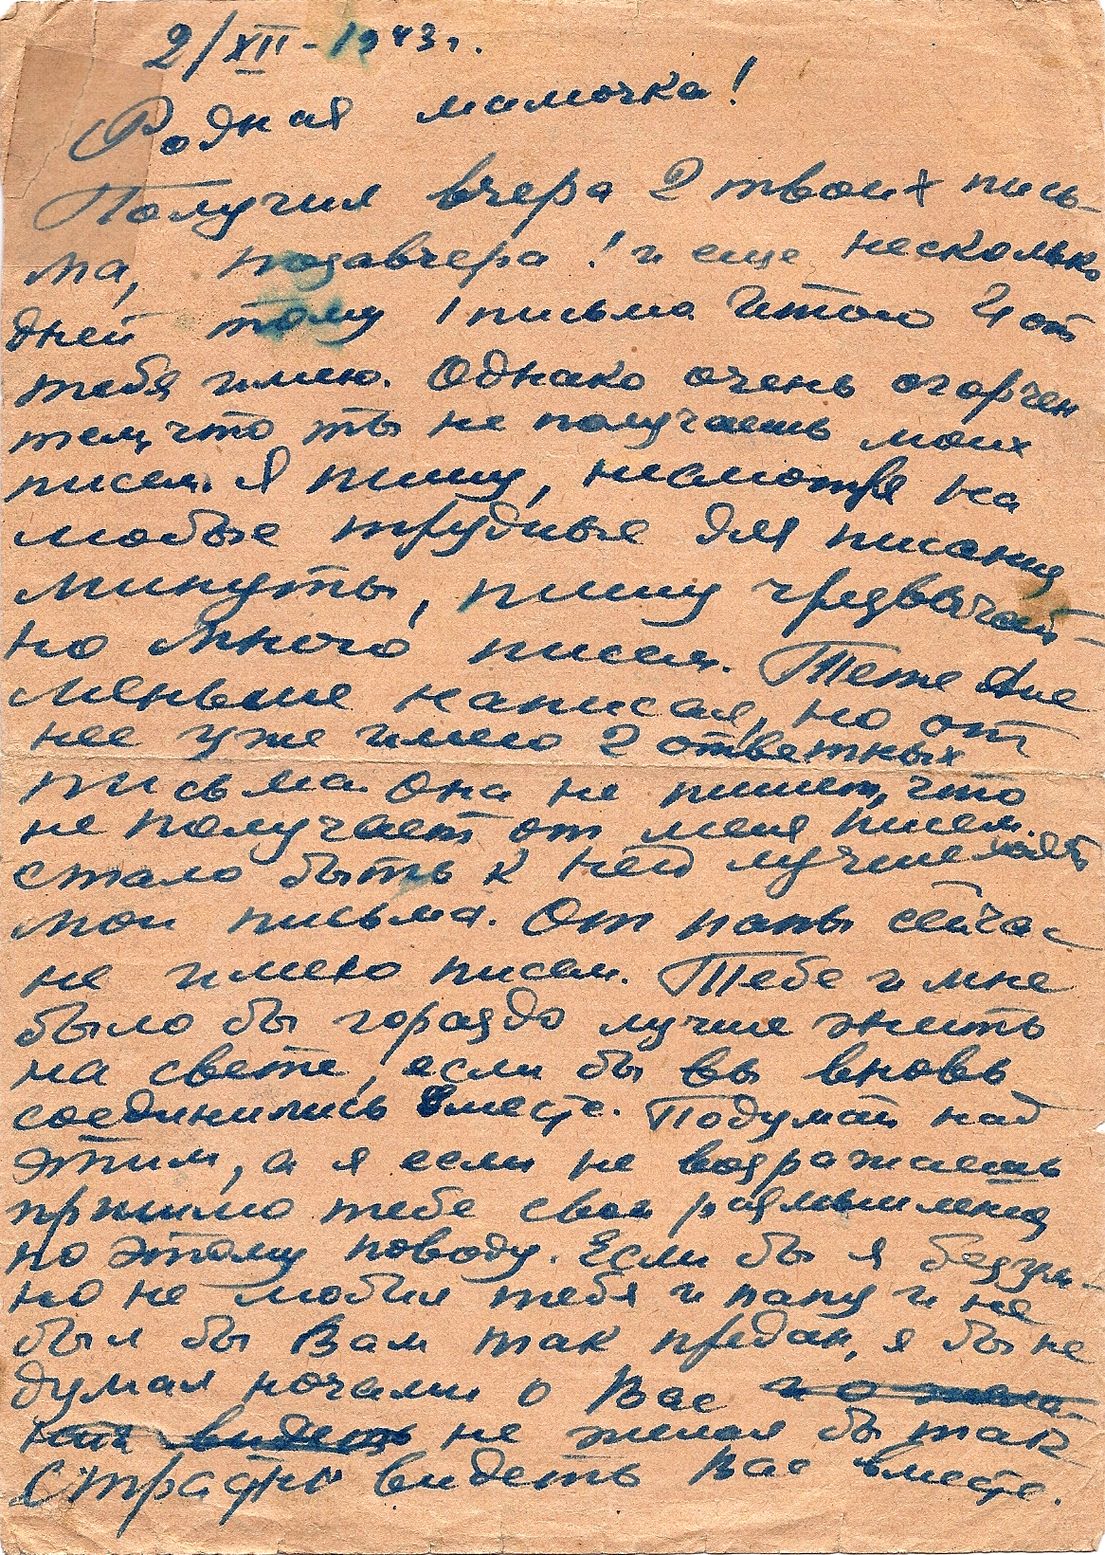 2/XII-1943г.
Родная мамочка!
Получил вчера 2 твоих пись-
ма, позавчера 1 и еще несколько
дней тому 1 письмо Итого 4 от
тебя имею. Однако очень огорчен
тем, что ты не получаешь моих
писем. Я пишу, несмотря на
любые трудные для писания
минуты, пишу чрезвычай-
но много писем. Теже Ане
меньше написал, но от
нее уже имею 2 ответных
письма Она не пишет, что
не получает от меня писем.
стало быть к ней лучше
мои письма. От папы сейчас
не имею писем. Тебе и мне
было бы гораздо лучше жить
на свете, если бы вы вновь
соединились вместе. Подумай над
этим, а я если не возражаешь
пришлю тебе свои размышления
по этому поводу. Если бы я безум-
но не любил тебя и папу и не
был бы Вам так предан, я бы не
думал ночами о Вас
не желал бы так
страстно видеть Вас вместе.